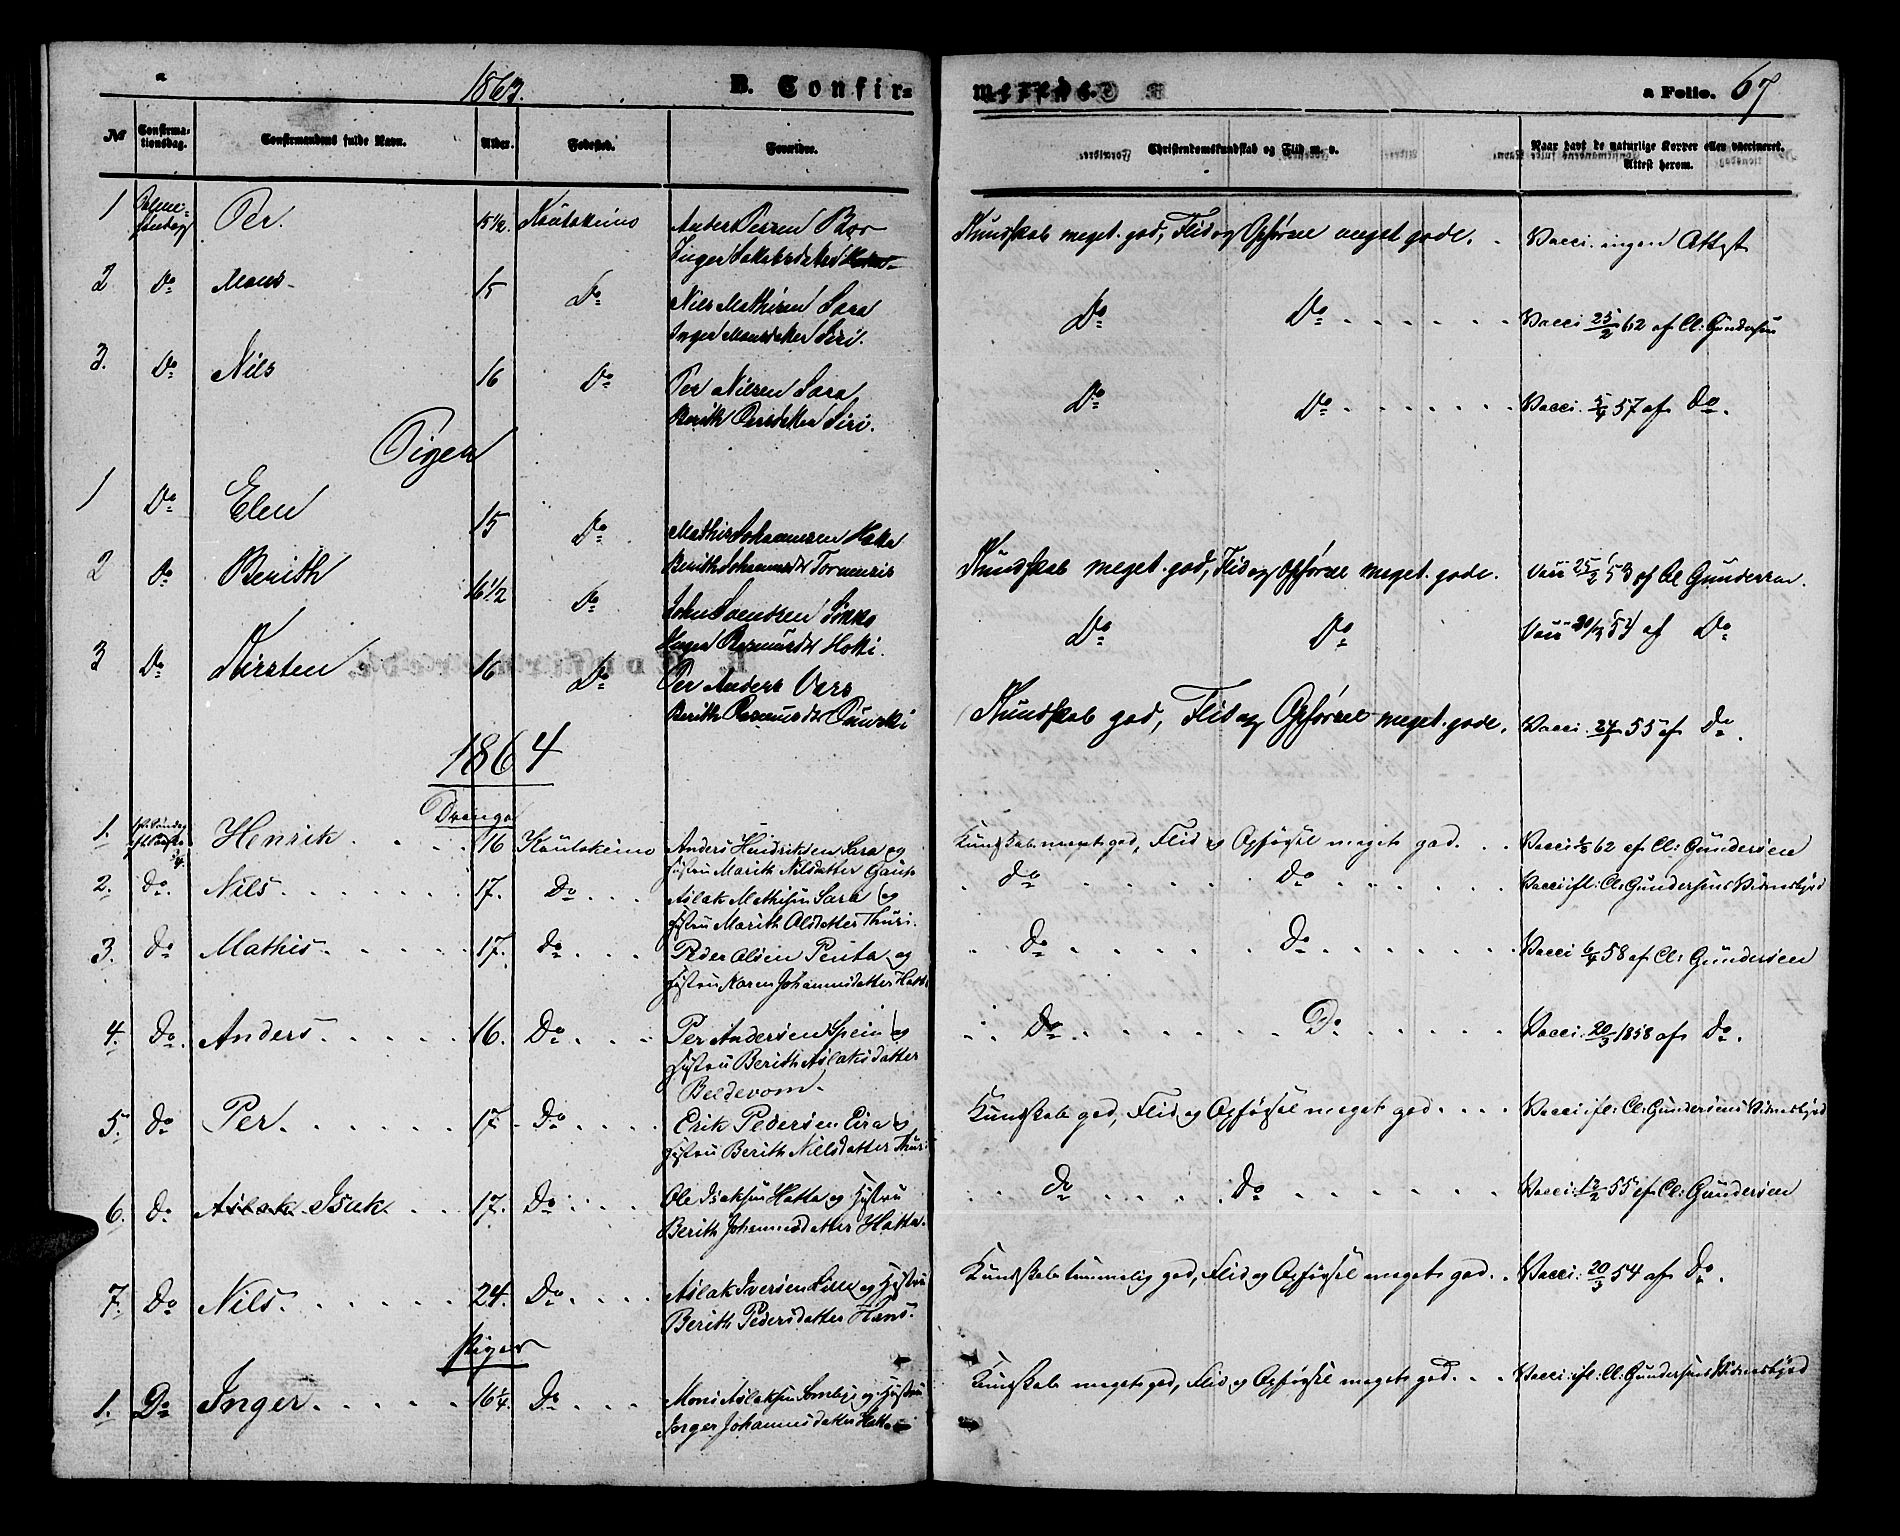 a 1863. B. Confir=
merede. a Folio. 67
No Confirma-tionsdag. Confirmandens fulde Navn. Alder. Fødested. Forældre. Christendomskundskab og Flid m. v. Naar havt de naturlige Kopper eller vaccineret. Attest herom.
1 Per. 15 1/2. Kautokeino Anders Persen Bær Kundskab meget god, Flid og Opførsel meget gode. Vacci. ingen Attest
Inger
2 Do Mons 15 Do Nils Mathisen Sara Do Do Vacci 25/2 62 af Cl: Gundersen
Inger Monsdatter Siri.
3. Do Nils 16 Do Per Nilsen Sara Do Do Vacci. 5/4 57 af Do.
Berith Persdatter Siri.
Piger
1 Do Elen 15 Do Mathis Johannesen Hætta Kundskab meget god, Flid og Opførsel meget gode. Vacc 25/2 53 af Cl Gundersen.
Berith Johannesdr Tornensis
2 Do Berith 16 1/2 Do John Svendsen Sokko Do Do Vacc af Do
Inger Rasmusdr
3 Do Kirsten 16 Do Per Anders Vars Kundskab god, Flid og Opførsel meget gode. Vacci. 55 af Do.
Berith Rasmusdr
1864
Drenge
1. Henrik 16 Kautokeino Anders Hendriksen Sara og Kundskab meget god, Flid og Opførsel meget god. Vacci 62 af Cl: Gundersen
Hustru Marith Nilsdatter Gaup
2. Do. Nils 17. Do Aslak Mathisen Sara og Do Do Vacci ifl: Cl: Gundersens Vidnesbyrd
Hustru Marith Olsdatter Thuri.
3. Do Mathis 17. Do Peder Olsen Penta og Do Do Vacci 6/4 58 af Cl: Gundersen
Hustru Karen Johannesdatter Hætta
4. Do. Anders 16. Do Per Andersen Spein og Do Do Vacci: 20/3 1858 af Do.
Hustru Berith Aslaksdatter
Beldevom.
5. Do Per 17. Do Erik Pedersen Eira og Kundskab god, Flid og Opførsel meget god. Vacci ifl: Cl: Gundersens Vidnesbyrd
Hustru Berith Nielsdatter Thuri
6. Do Aslak Isak 17. Do Ole Isaksen Hætta og Hustru Do Do Vacci. 12/2 55 af Cl: Gundersen
Berith Johannesdatter Hætta.
7. Do Nils 24. Do Aslak Iversen og Hustru Kundskab temmelig god, Flid og Opførsel meget god. Vacci: 20/3 54 af Do.
Berith Pedersdatter Hans.
Piger
1. Do Inger 16 1/4. Do Mons Aslaksen Somby og Hustru Kundskab meget god, Flid og Opførsel meget god. Vacci ifl: Cl: Gundersens Vidnesbyrd
Inger Johannesdatter Hætta